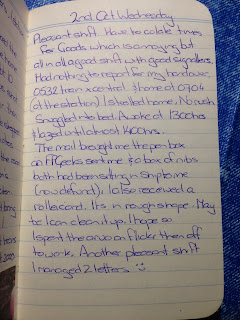 2nd Oct Wednesday
Pleasant shift. Have to colate times
for Goods which is annoying but
all in all a good shift with good signallers.
Had nothing to report for my handover.
0532 train x central. & home at 0704
(at the station) I strolled home. No rush
Snuggled into bed. Awoke at 1300hrs
& lazed until almost 1400hrs.
The mail brought me the pen box
an FPGeeks sent me & a box of nibs
both had been sitting in Shipito me
(now defunct). I also received a
rollercord. Its in rough shape. May
be I can clean it up. I hope so
I spent the arvo on flickr then off
to work. Another pleasant shift
I managed 2 letters.